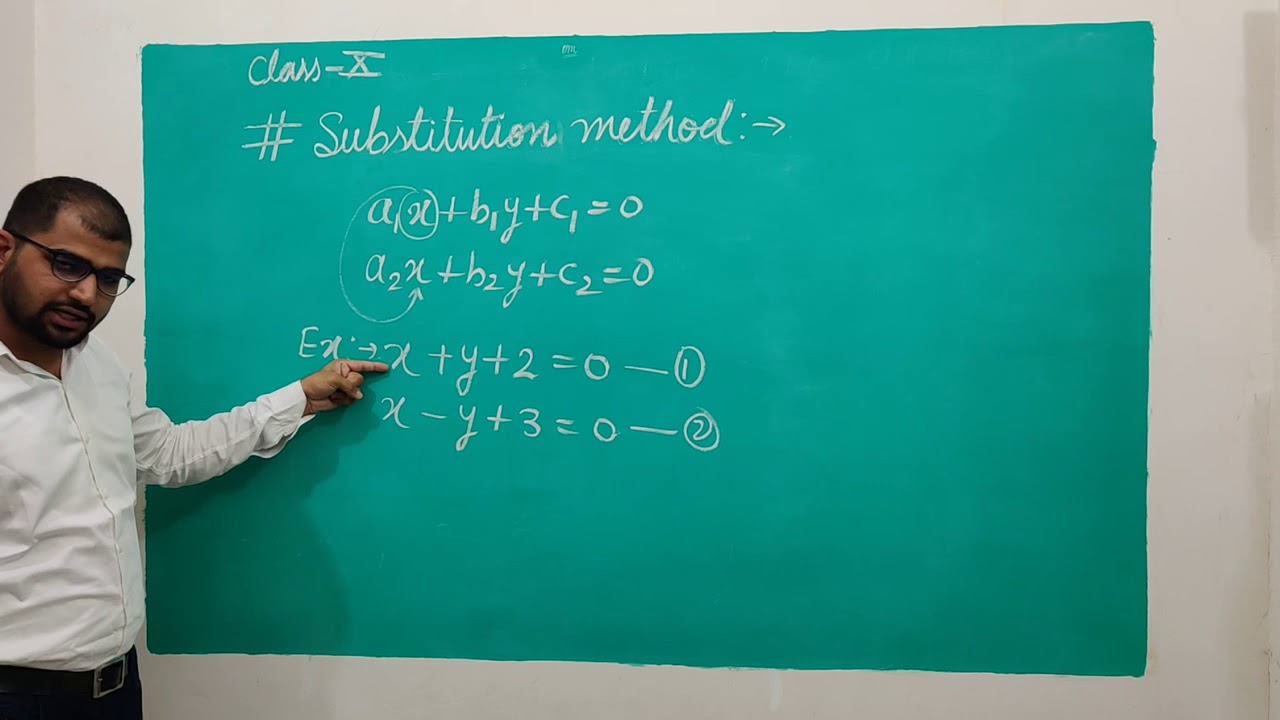 Class-X
# Substitution method:→
a₁x+b₁y+c₁=0
a₂x+b₂y+c₂=0
Ex:→x+y+2=0—①
x-y+3=0—②